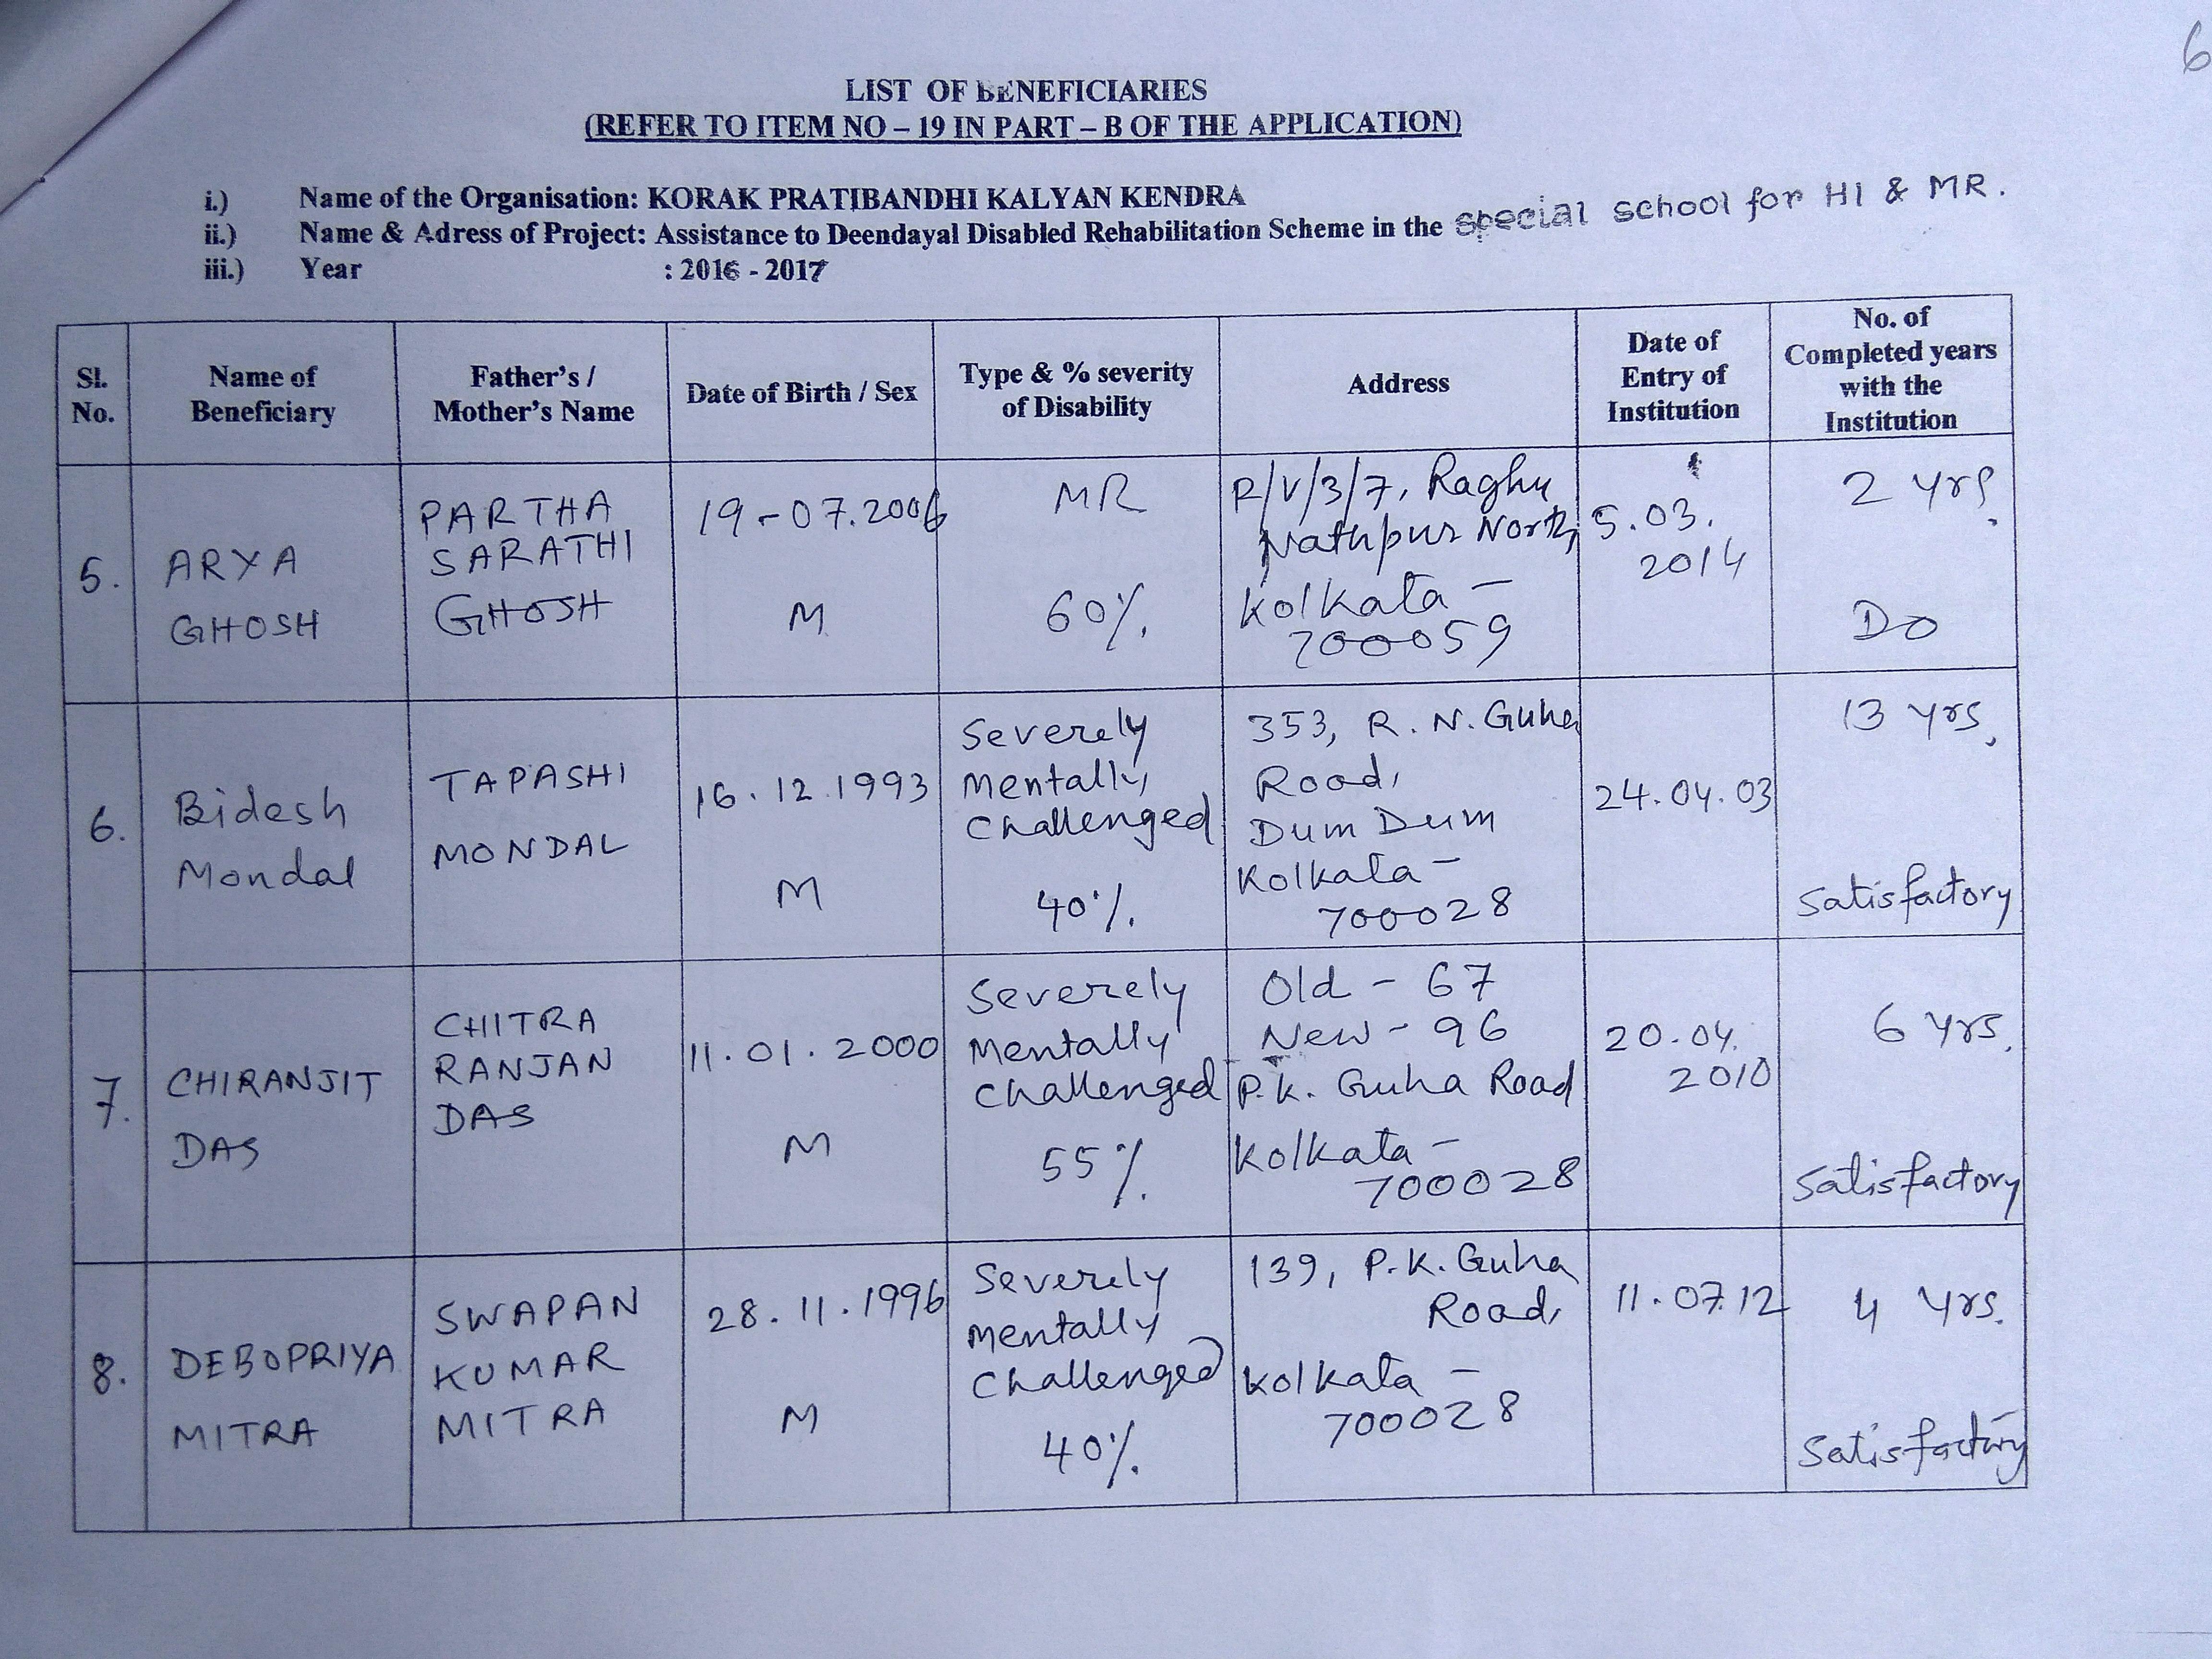 6
LIST OF BENEFICIARIES
(REFER TO ITEM NO – 19 IN PART – B OF THE APPLICATION)
i.) Name of the Organisation: KORAK PRATIBANDHI KALYAN KENDRA
ii.) Name & Adress of Project: Assistance to Deendayal Disabled Rehabilitation Scheme in the special school for HI & MR.
iii.) Year : 2016 - 2017
Sl. No. | Name of Beneficiary | Father's / Mother's Name | Date of Birth / Sex | Type & % severity of Disability | Address | Date of Entry of Institution | No. of Completed years with the Institution
5. | ARYA GHOSH | PARTHA SARATHI GHOSH | 19-07.2006 M | MR 60% | R/V/3/7, Raghu Nathpur North, Kolkata - 700059 | 5.03.2014 | 2 yrs. Do
6. | Bidesh Mondal | TAPASHI MONDAL | 16.12.1993 M | Severely Mentally Challenged 40% | 353, R. N. Guha Road, Dum Dum Kolkata - 700028 | 24.04.03 | 13 yrs. Satisfactory
7. | CHIRANJIT DAS | CHITRA RANJAN DAS | 11.01.2000 M | Severely Mentally Challenged 55% | Old - 67 New - 96 P.K. Guha Road Kolkata - 700028 | 20.04.2010 | 6 yrs. Satisfactory
8. | DEBOPRIYA MITRA | SWAPAN KUMAR MITRA | 28.11.1996 M | Severely Mentally Challenged 40% | 139, P.K. Guha Road, Kolkata - 700028 | 11.07.12 | 4 yrs. Satisfactory